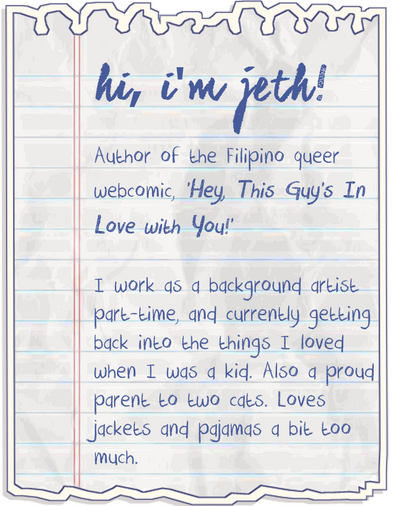 hi, i'm jeth!
Author of the Filipino queer
webcomic, 'Hey, This Guy's In
Love with You!'
I work as a background artist
part-time, and currently getting
back into the things I loved
when I was a kid. Also a proud
parent to two cats. Loves
jackets and pajamas a bit too
much.